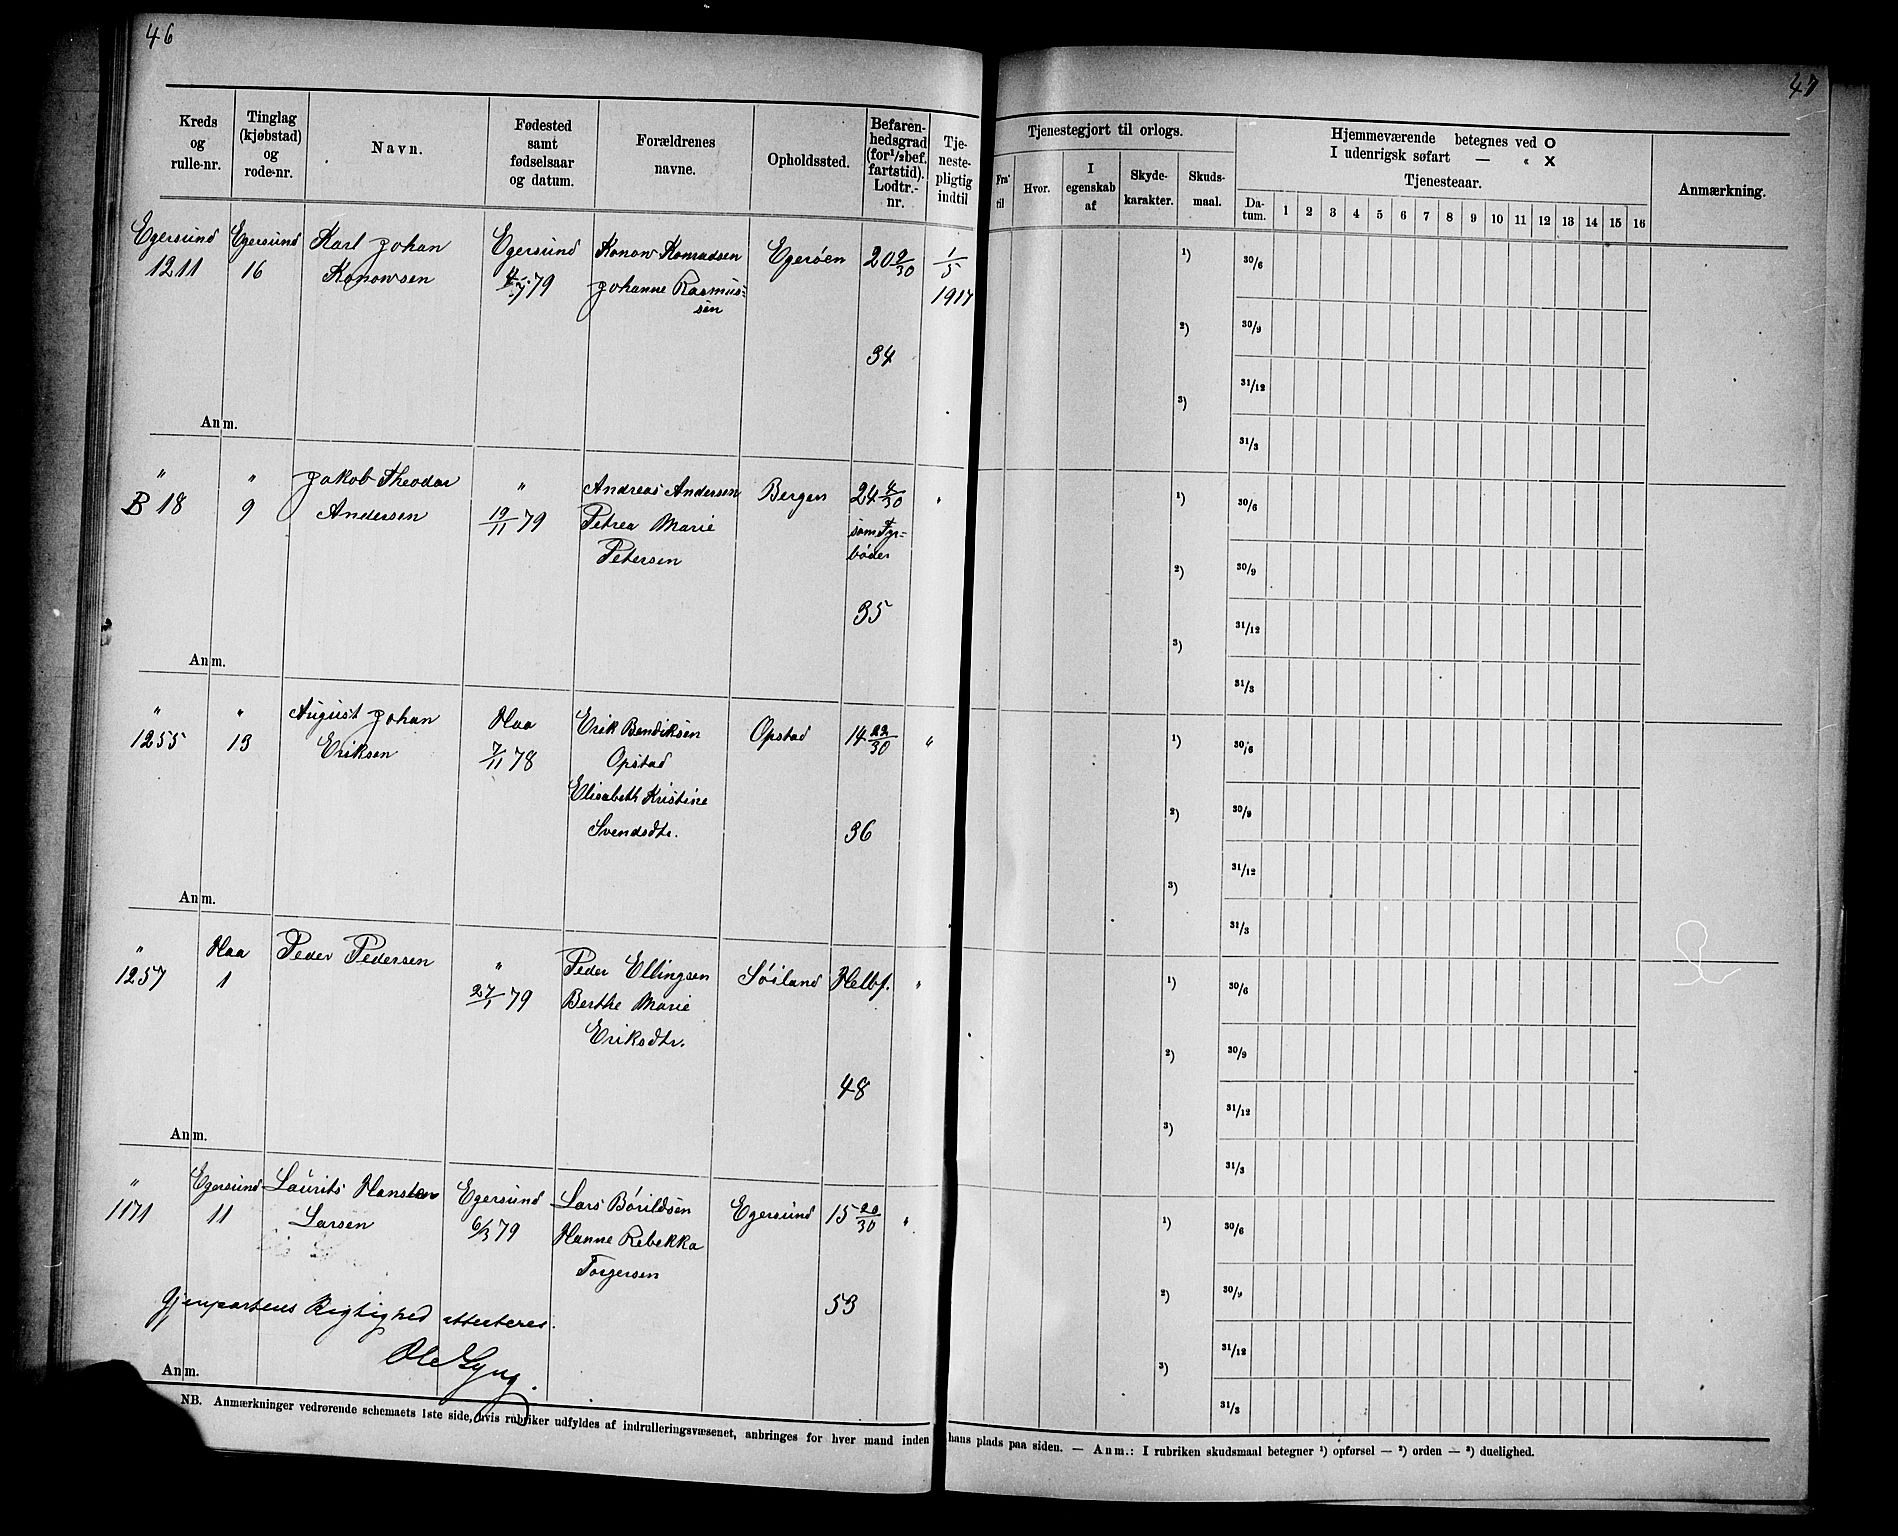 46
47
Kreds og rulle-nr.
Tinglag (kjøbstad) og rode-nr.
Navn.
Fødested samt fødselsaar og datum.
Forældrenes navne.
Opholdssted.
Befarenhedsgrad (for ½ bef. fartstid). Lodtr.-nr.
Tjenestepligtig indtil
Tjenestegjort til orlogs.
Fra til
Hvor.
I egenskab af
Skydekarakter.
Skudsmaal.
Hjemmeværende betegnes ved O
I udenrigsk søfart — " X
Tjenesteaar.
Datum. 1 2 3 4 5 6 7 8 9 10 11 12 13 14 15 16
Anmærkning.
Egersund Egersund Karl Johan Egersund Konow Konradsen Egerøen 20 9/30 1/5
1211 16 Konowsen 79 Johanne Rasmus= 1917
sen
34
Anm.
1) 30/6
2) 30/9
3) 31/12
31/3
" " Jakob Theodor " Andreas Andersen Bergen 24 4/30 "
B 18 9 Andersen 19/11 79 Petrea Marie som Fyr=
Petersen bøder
35
Anm.
1) 30/6
2) 30/9
3) 31/12
31/3
" " August Johan Haa Erik Bendiksen Opstad 14 23/30 "
1255 13 Eriksen 7/11 78 Opstad
Elisabeth Kristine
Svendsdtr. 36
Anm.
1) 30/6
2) 30/9
3) 31/12
31/3
" Haa Peder Pedersen " Peder Ellingsen Søiland Helbf. "
1257 1 27/1 79 Berthe Marie
Eriksdtr.
48
Anm.
1) 30/6
2) 30/9
3) 31/12
31/3
" Egersund Laurits Egersund Lars Børildsen Egersund 15 20/30 "
1171 11 Larsen 6/3 79 Hanne Rebekka
Torgersen
53
Gjenpartens Rigtighed attesteres.
Anm.
1) 30/6
2) 30/9
3) 31/12
31/3
NB. Anmærkninger vedrørende schemaets 1ste side, hvis rubriker udfyldes af indrulleringsvæsenet, anbringes for hver mand inden hans plads paa siden. — Anm.: I rubriken skudsmaal betegner ¹) opførsel — ²) orden — ³) duelighed.